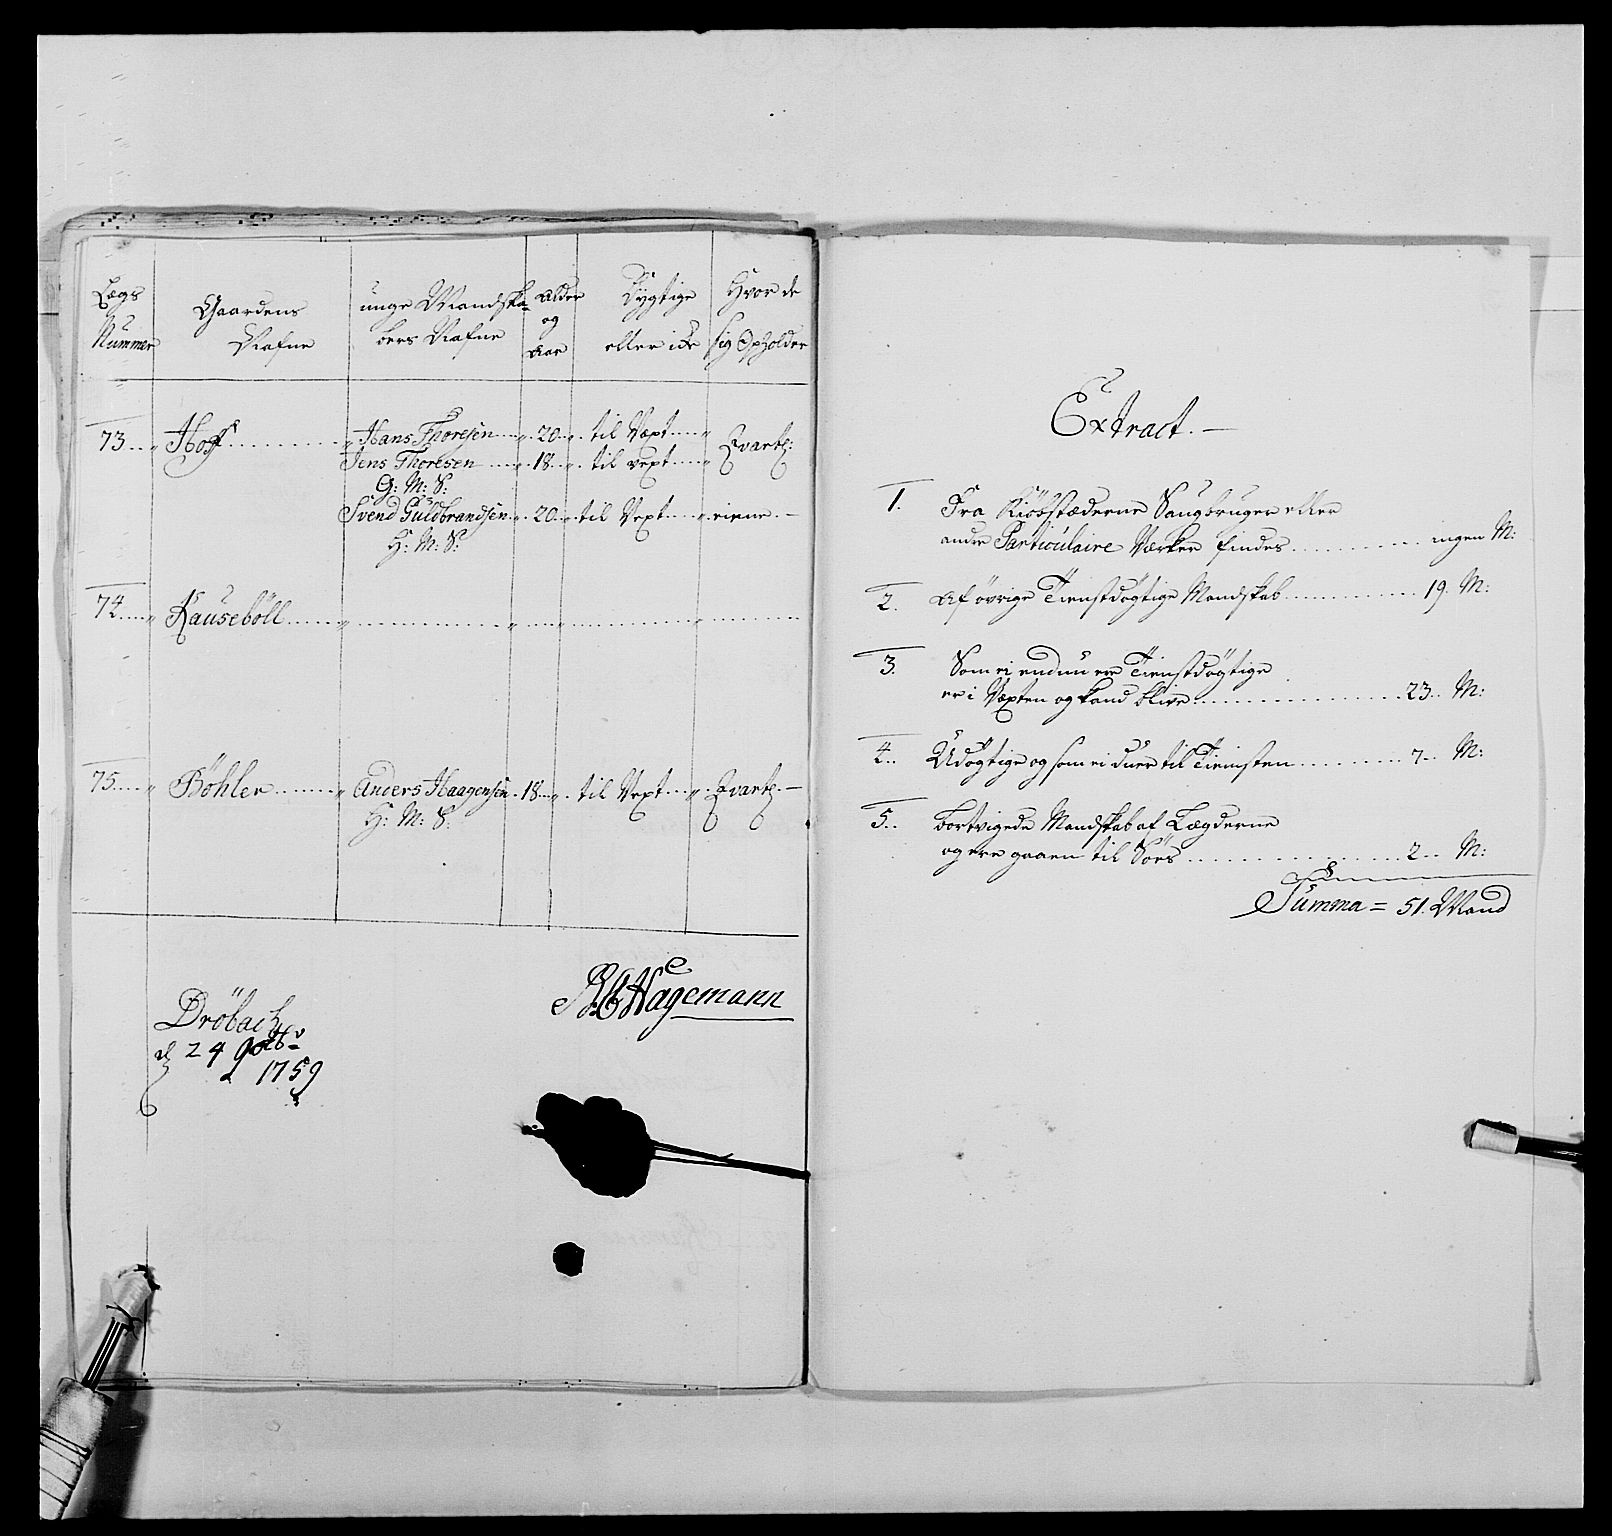 Lægs Nummer
Gaardens Nafne
unge Mandska-bers Nafne
Alder og Aar
Dygtige eller icke
Hvor de sig Opholder
73 Hoff Hans Thoresen 20 til Væxt Qvart:
Jens Thoresen 18 til vext
G: M: S:
Svend Guldbrandsen 20 til Vext
H: M: S:
74 Kauseböll
75 Böhler Anders Haagensen 18 til Vext Qvart:
H: M: S:
Dröbach
d 24 9vbr
1759
Hagemann
Extract.
1. Fra Kiöbstæderne Saugbruger eller
andre Particulaire Værker findes ingen M:
2. Af övrige Tienstdögtige Mandskab 19. M:
3. Som ei endnu ere Tienstdögtige
er i Væxten og kand blive 23 M:
4. Udögtige og som ei duer til Tienesten 7 M:
5. Bortvigede Mandskab af Lægderne
og ere gaaen til Söes 2 M:
Summa = 51. Mand